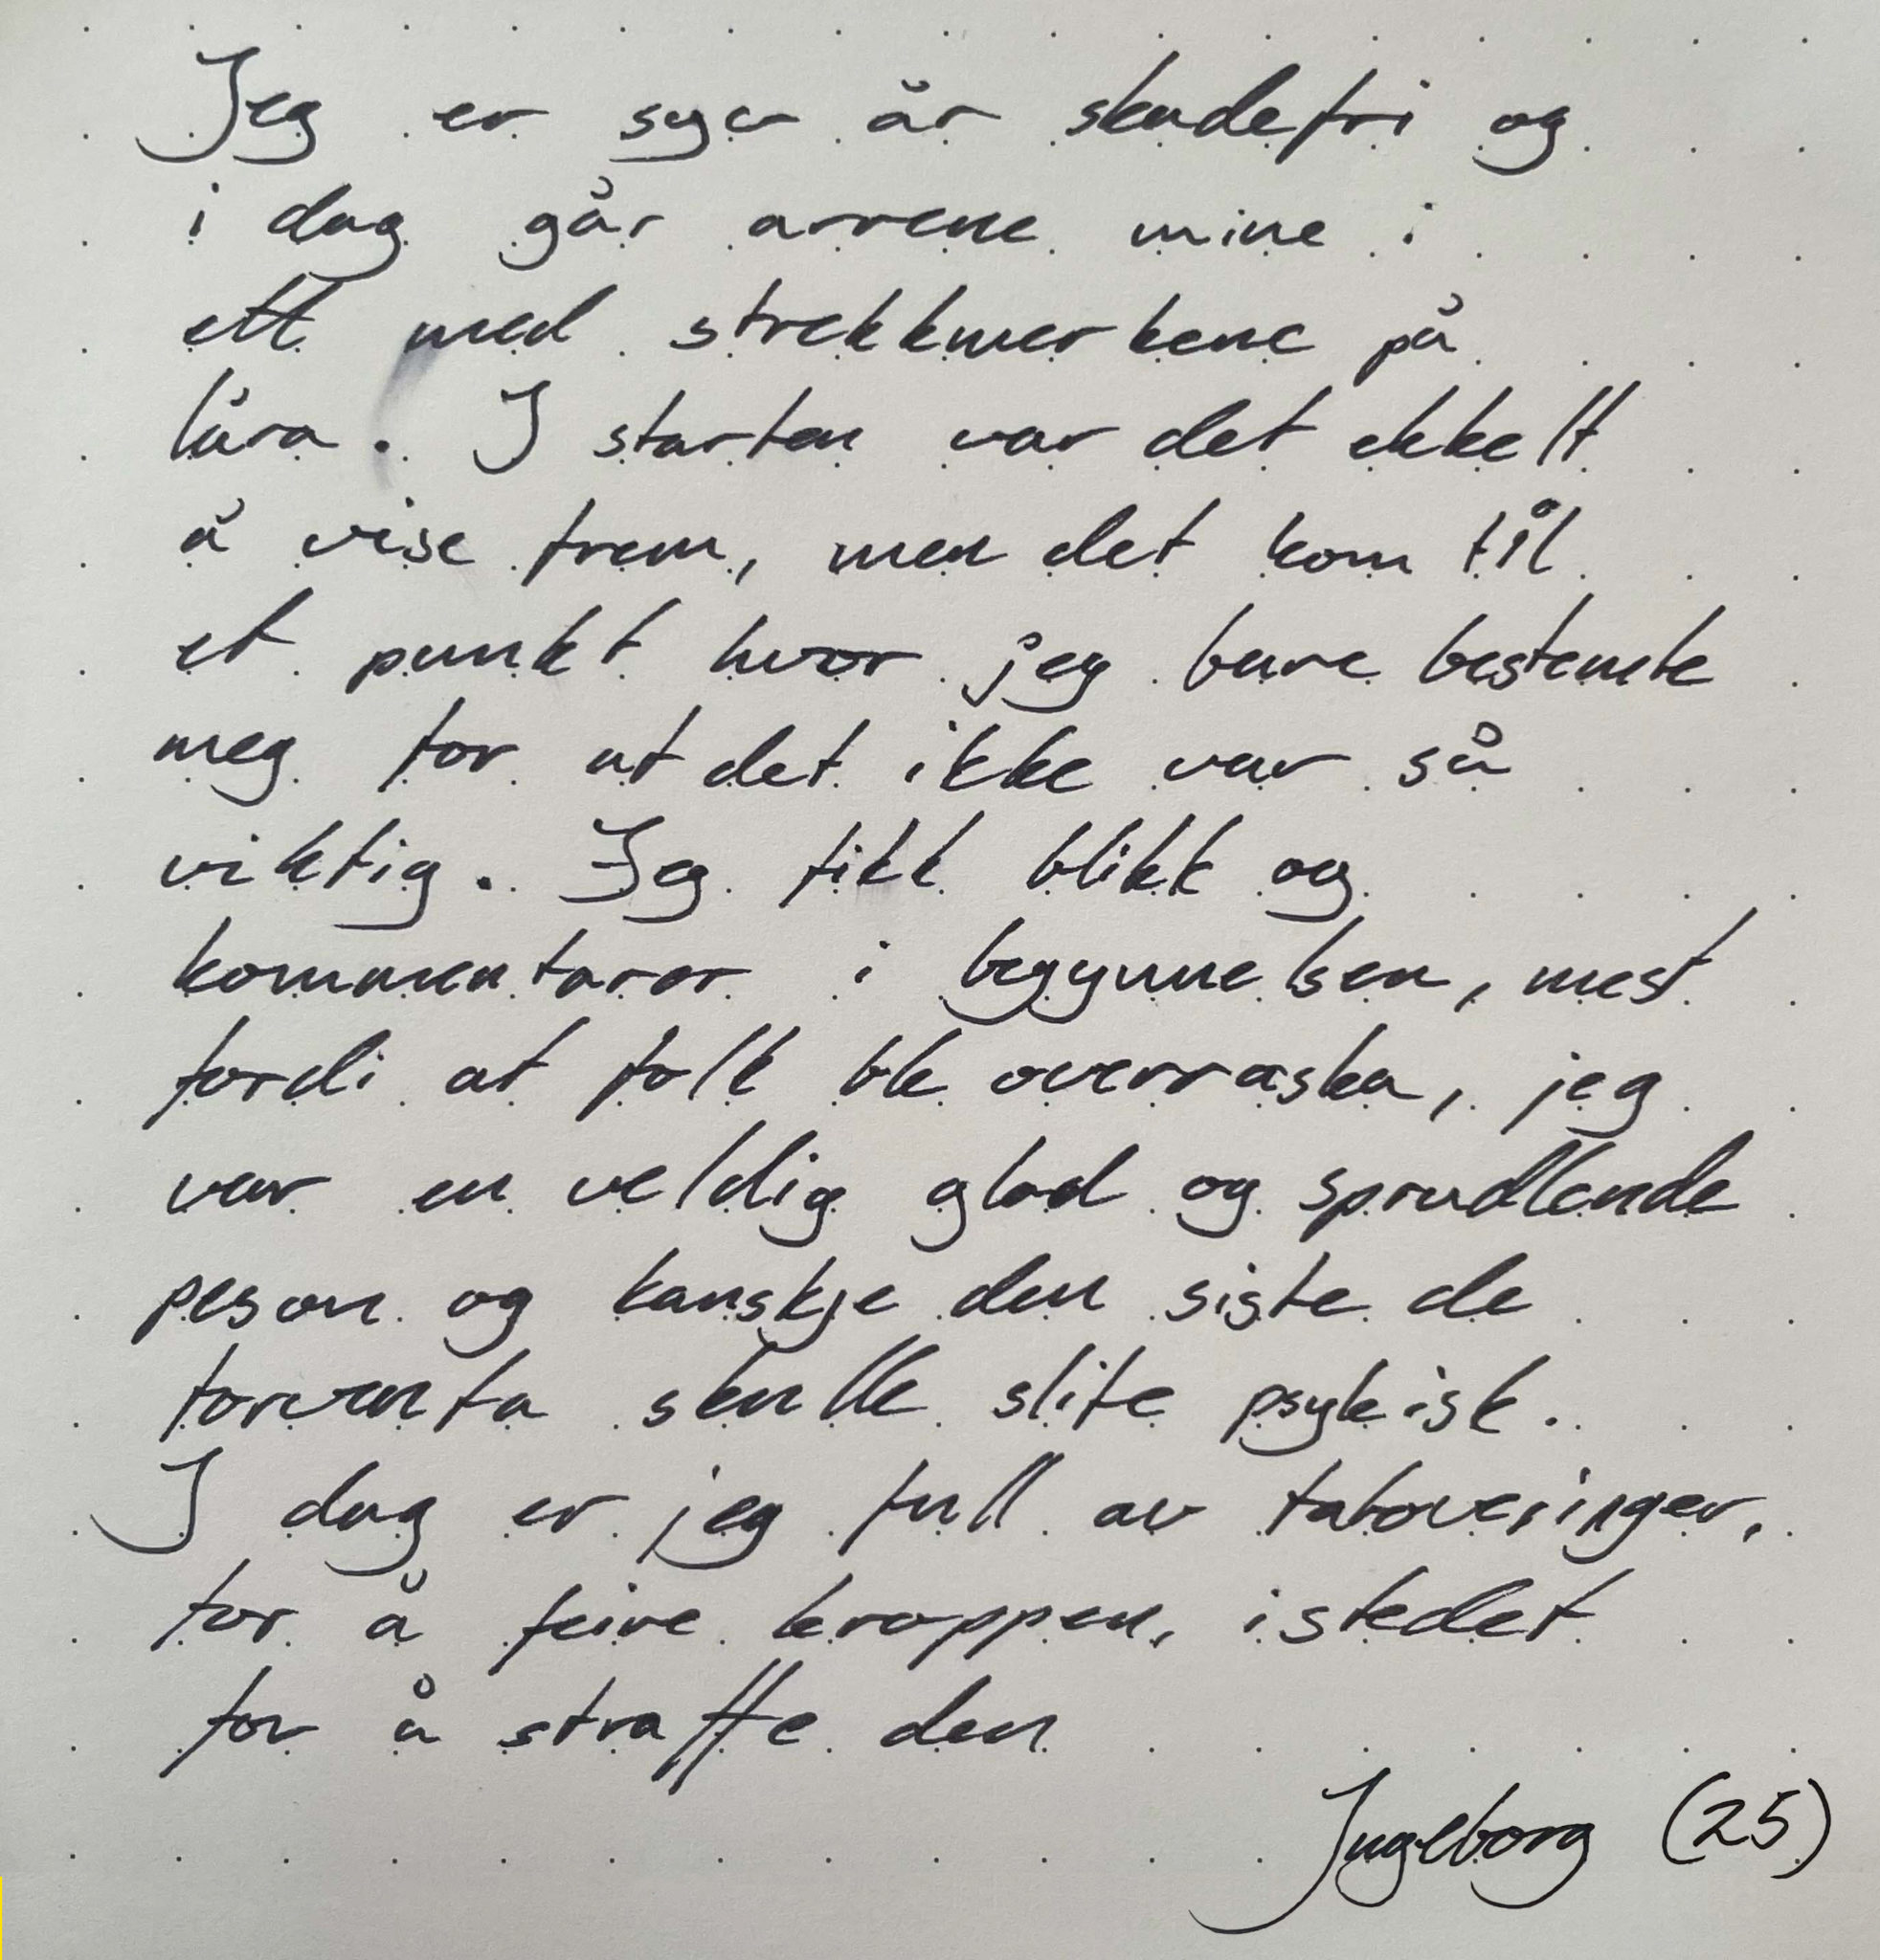 Jeg er syv år skadefri og
i dag går arrene mine i
ett med strekkmerkene på
låra. I starten var det ekkelt
å vise frem, men det kom til
et punkt hvor jeg bare bestemte
meg for at det ikke var så
viktig. Jeg fikk blikk og
kommentarer i begynnelsen, mest
fordi at folk ble overraska, jeg
var en veldig glad og sprudlende
peson og kanskje den siste de
forventa skulle slite psykisk.
I dag er jeg full av tatoveringer,
for å feire kroppen, istedet
for å straffe den
Ingeborg (25)